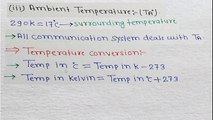 (iii) Ambient Temperature:- (Ta)
290K = 17°C → surrounding temperature
→ All communication system dealt with Ta
→ Temperature conversion:-
→ Temp in °C = Temp in K - 273
→ Temp in Kelvin = Temp in °C + 273